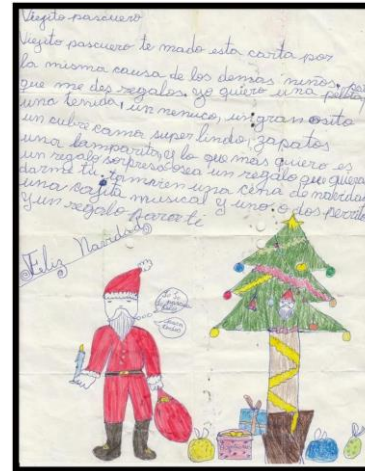 Viejito pascuero
Viejito pascuero te mado esta carta por
la misma causa de los demas niños, por
que me des regalos. yo quiero una pelota,
una tenida, un nenuco, un gran osito
un cubre cama super lindo, zapatos
una lamparita, y lo que más quiero es
un regalo sorpresa osea un regalo que quieras
darme tu, tambien una cena de navidad
una cajita musical y uno o dos perrito
y un regalo Para ti
Feliz Navidad